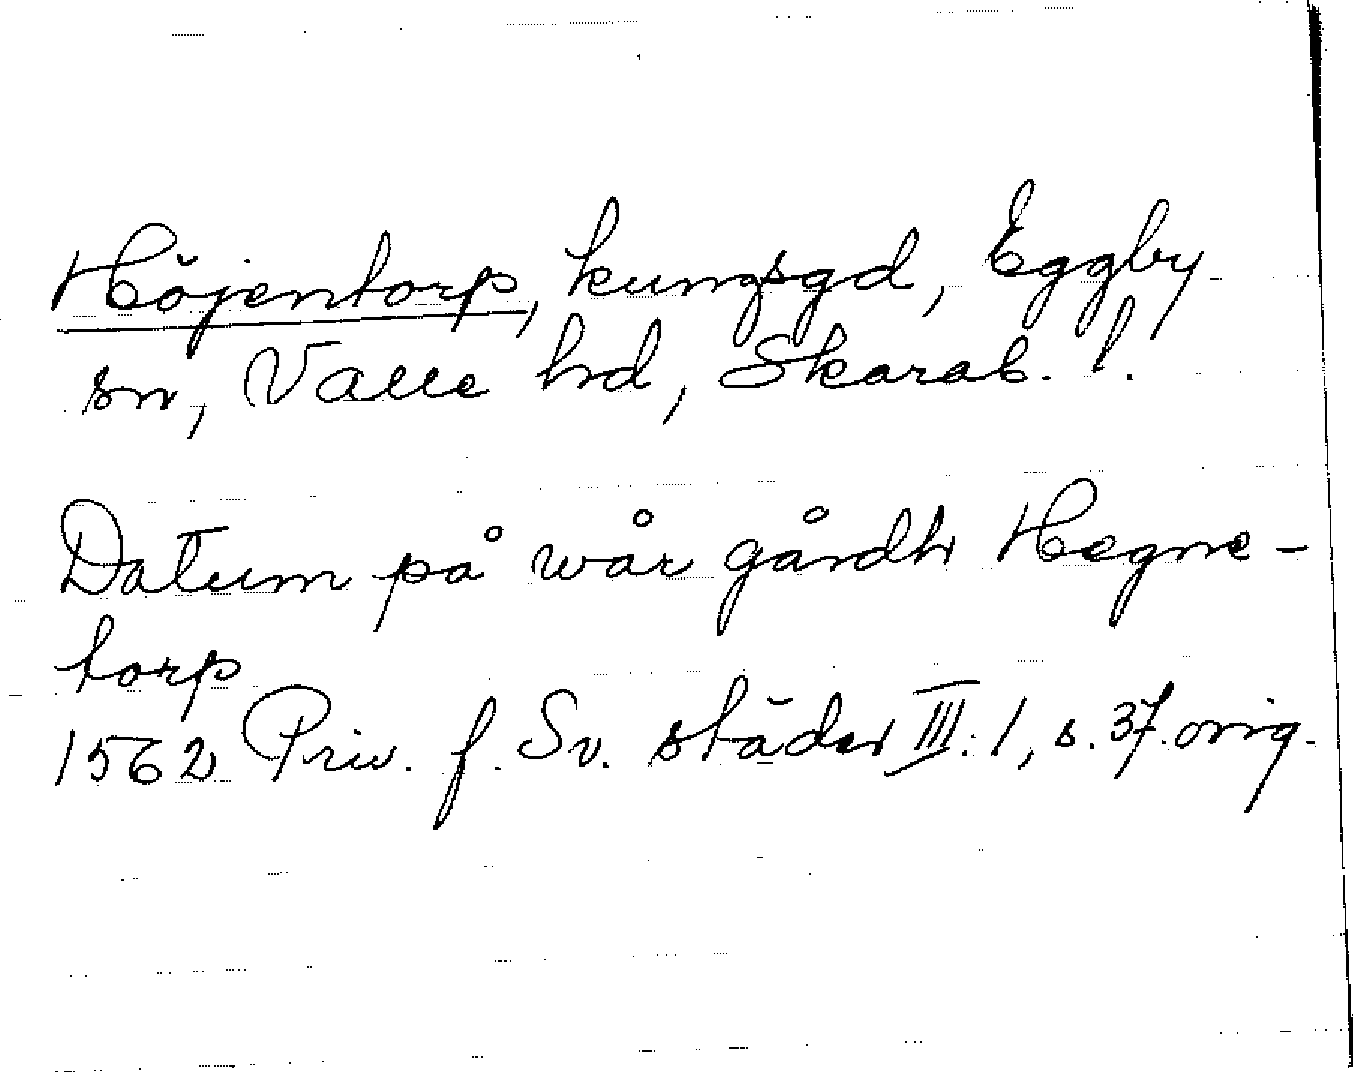 Höjentorp, kungsgd, Eggby
sn, Valle hd, Skarab. l.
Datum på wår gårdh Hegne-
torp
1562 Priv. f. Sv. städer III: 1, s. 37. orig.